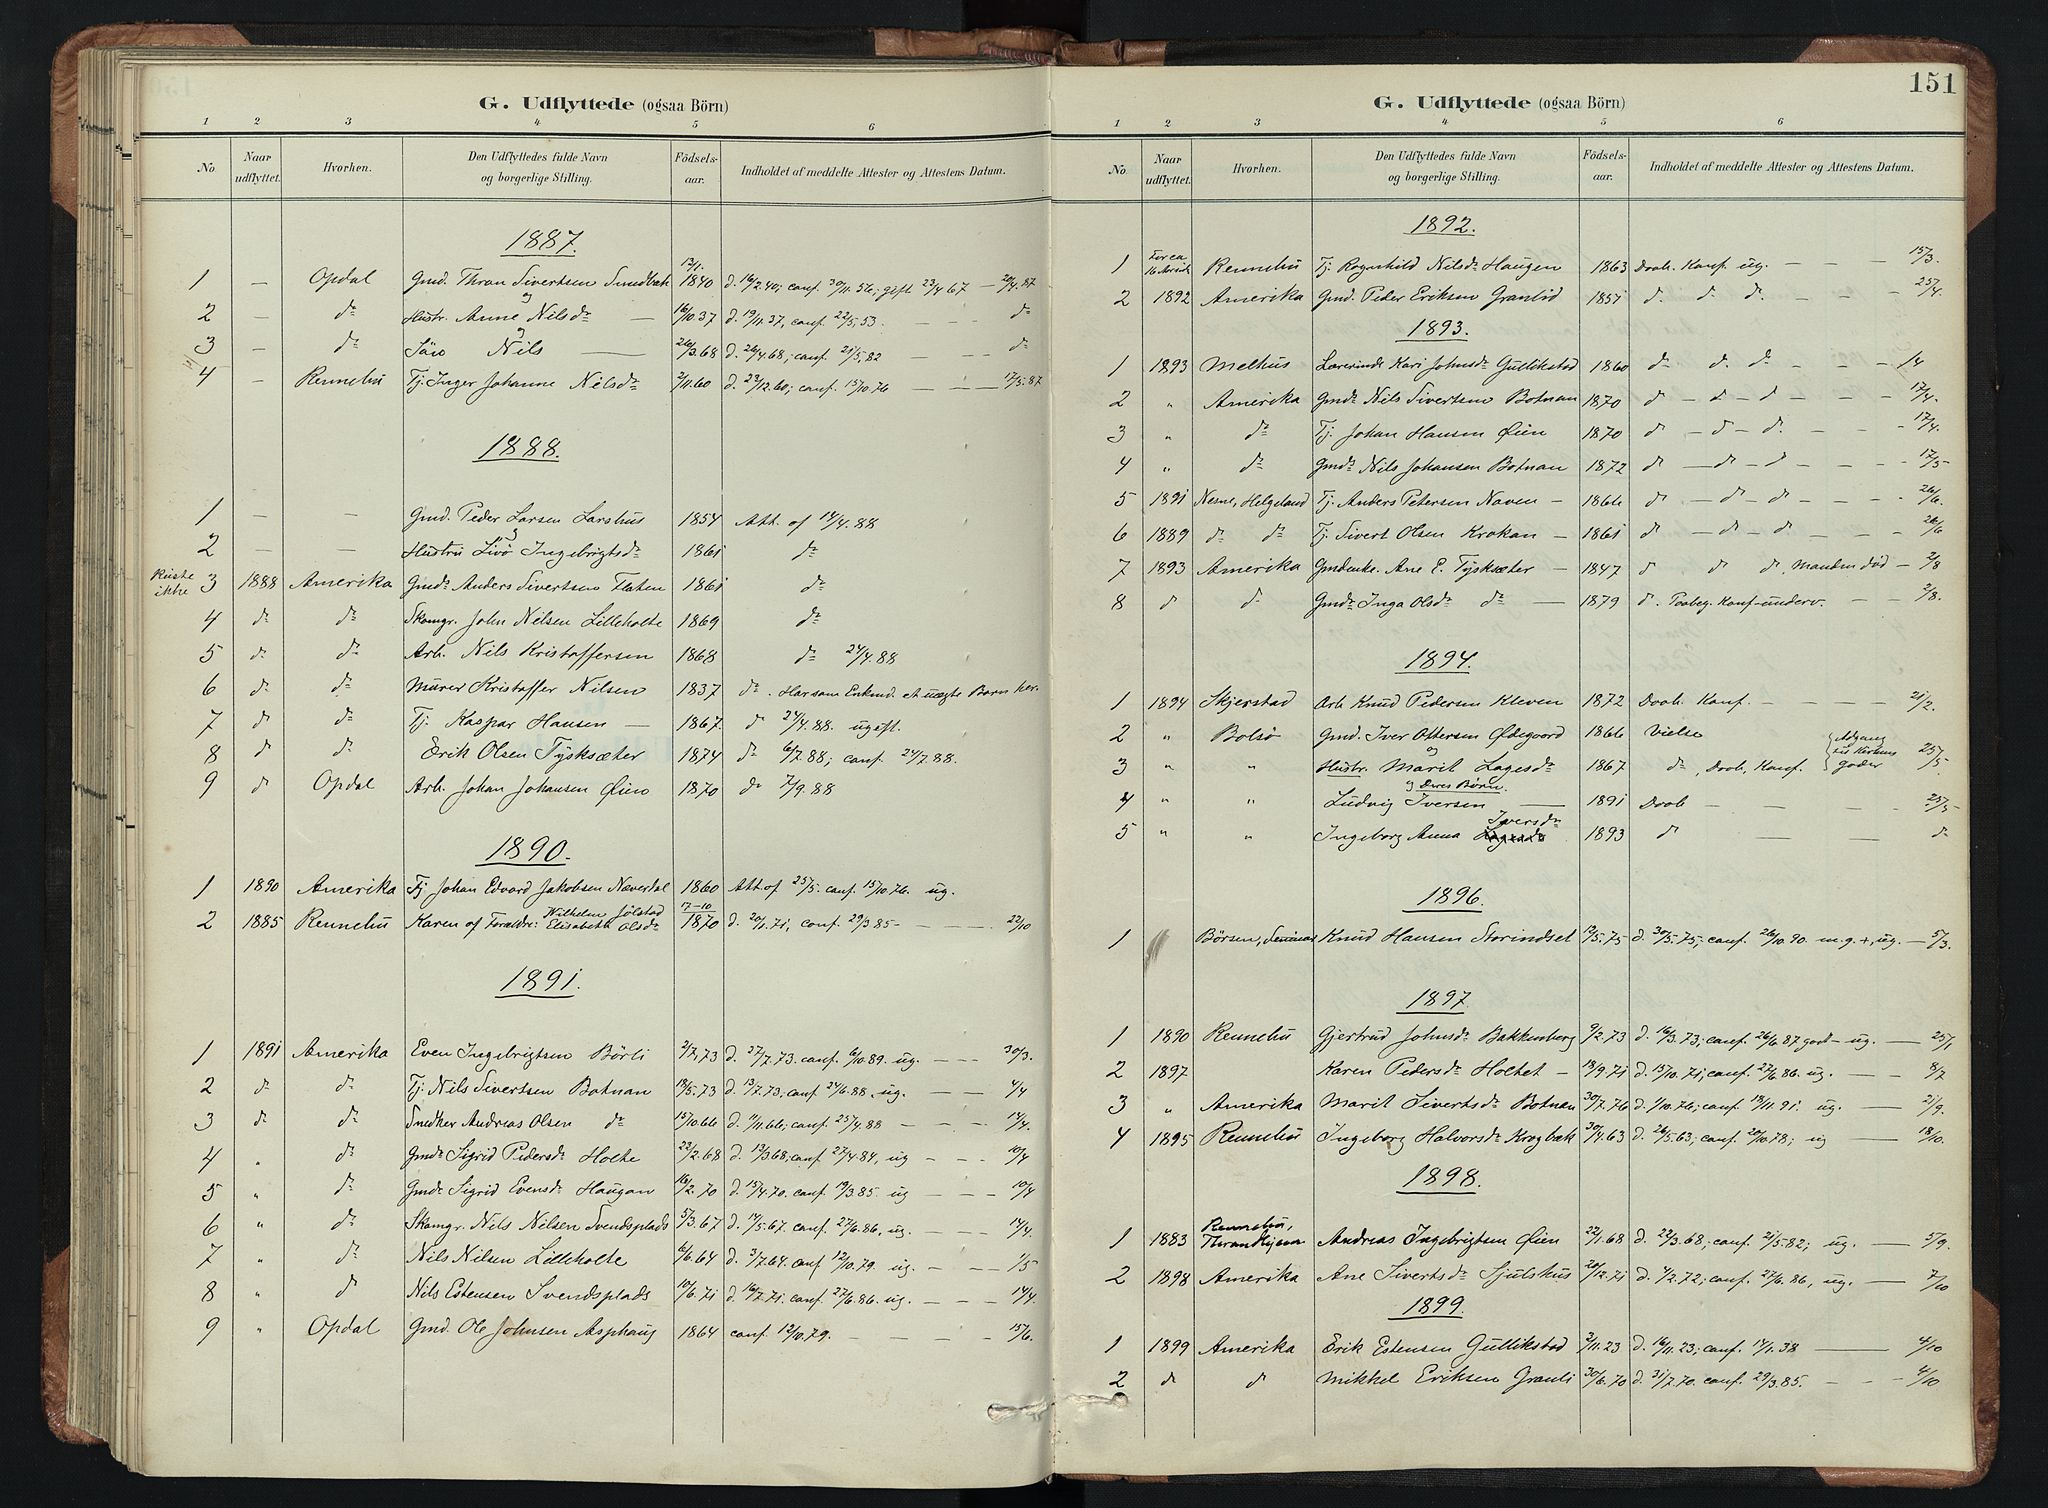 G. Udflyttede (ogsaa Börn)
1 2 3 4 5 6
No Naar udflyttet. Hvorhen. Den Udflyttedes fulde Navn og borgerlige Stilling. Födsels-aar. Indholdet af meddelte Attester og Attestens Datum.
1887.
1 — Opdal Gmd. Thran Sivertsen Smedbak 12/1. 1840 d. 16/2.40; conf. 30/11.56; gift 23/4 67 — 20/4.87
2 — dº Hustr. Anne Nilsdr — 16/10.37 d. 19/11.37, conf. 22/5.53. — — — dº
3 — dº Sön Nils — 26/3.68 d. 26/4.68; conf. 21/5.82 — — — dº
4 — Rennebu Tj. Inger Johanne Nilsdr 2/11.60 d. 23/12.60; conf. 15/10.76 — — — 17/5.87
1888.
1 — — Gmd. Peder Larsen Larshus 1854 Att. af 14/4.88
2 — — Hustru Livö Ingebrigtsdr 1861 dº
Reiste ikke 3 1888 Amerika Gmds Anders Sivertsen Flaten 1861 dº
4 dº dº Skomgr. John Nilsen Lilleholte 1869 dº
5 dº dº Arb. Nils Kristoffersen 1868 dº 24/4.88
6 dº dº Murer Kristoffer Nilsen 1837 dº. Har som Enkmd. et uægte Barn her.
7 d d Tj. Kaspar Hansen — 1867. d 24/4.88. ugift.
8 d d Erik Olsen Tysksæter 1874 dº 6/7.88; conf. 24/7.88.
9 d Opdal Arb. Johan Johansen Øien 1870 dº 7/9.88
1890.
1 1890 Amerika Tj. Johan Edvard Jakobsen Næverdal 1860 Att af 25/5. conf. 15/10.76. ug.
2 1885 Rennebu Karen af Forældre: Vilhelm Jølstad Elisabeth Olsdr 7-10 1870 d. 20/1.71, conf. 29/3.85 — — — 22/10
1891.
1 1891 Amerika Even Ingebrigtsen Börli 2/7.73 d. 27/7.73. conf. 6/10.89. ug. — — 30/3.
2 d d Tj. Nils Sivertsen Botnan 18/5.73 d. 13/7.73; conf. 24/6.88. ug. — — 4/4
3 d d Snedker Andreas Olsen dº 15/10.66 d. 11/11.66; conf. 25/4.88 — — 14/4.
4 " d Gmds Sigrid Pedersdr Holte 23/2.68 d. 13/3.68; conf. 27/4.84, ug — — — 10/4
5 " d Gmds Sigrid Evensdr Haugan 16/2.70 d. 15/4.70. conf. 19/3.85. ug — — — 10/4
6 " d Skomgr. Nils Nilsen Svendsplads 5/3.67 d. 14/5.67. conf. 27/6.86, ug. — — 14/4.
7 " d Nils Nilsen Lilleholte 6/6.64 d. 3/7.64. conf 12/10.79. ug. — — — 1/5
8 " d Nils Estensen Svendsplads 10/6.71 d. 16/7.71. conf. 27/6.86. ug. — — — 14/4.
9 " Opdal Gmd. Ole Johnsen Asphaug 1864 conf. 12/10.79. — — — 15/6.
151
G. Udflyttede (ogsaa Börn)
1 2 3 4 5 6
No. Naar udflyttet. Hvorhen. Den Udflyttedes fulde Navn og borgerlige Stilling. Födsels-aar. Indholdet af meddelte Attester og Attestens Datum.
1892.
1 For ca 16 Aar siden Rennebu Tj. Ragnhild Nilsdr Haugen 1863 Daab. Konf. ug. — — — 15/3.
2 1892 Amerika Gmd. Peder Eriksen Granlid 1851 d. d. d. — — — 25/4.
1893.
1 1893 Melhus Lærerinde Kari Johnsdr Gullikstad 1860 d. d. d. — — — 1/4
2 " Amerika Gmds Nils Sivertsen Botnan 1870 d — d — d — — — 17/4.
3 " dº Tj. Johan Hansen Øien 1870 d — d — d. — — 17/4.
4 " dº Gmds Nils Johansen Botnan 1872 d — d — d — — — 17/5
5 1891 Nesne, Helgeland Tj. Anders Petersen Naven — 1866 d — d — d — — — 26/6.
6 1889 d. d. Tj. Sivert Olsen Krokan — 1861 d — d — d — — — 26/6
7 1893 Amerika Gmdenke. Ane E. Tysksæter — 1847 d d d, Manden död — 2/8
8 d d. Gmds Inga Olsdr dº — 1879 d. Paabeg. Konf-underv. — — 2/8.
1894.
1 1894 Skjerstad Arb. Knud Pedersen Kleven 1872 Daab. Konf. — — — 21/2.
2 " Bolsö Gmd. Iver Ottersen Ødegaard 1866 Vielse
3 " " Hustr. Marit Lagesdr 1867 dº, Daab, Konf. { Adgang til Kirkens Goder 25/5.
og deres Börn.
4 " " Ludvig Iversen — 1891 Daab — — — 25/5
5 " " Ingeborg Anna Iversdr 1893 d — — d
1896.
1 Börsen, Seminar Knud Hansen Storindset 13/5.75 d. 30/5.75; conf. 26/10.90. m.g.+, ug. — 5/3.
1897.
1 1890 Rennebu Gjertrud Johnsdr Bakkenberg 9/2.73 d. 16/3.73; conf. 26/6.87 god — ug. — 25/1
2 1897 Karen Pedersdr Holtet — 18/9.71 d. 15/10.71; conf. 27/6.86. ug. — 8/7
3 " Amerika Marit Sivertsdr Botnan 30/7.76 d. 1/10.76; conf. 18/11.91. ug. — 21/9.
4 1895 Rennebu Ingeborg Halvorsdr Krogbæk 30/4.63 d. 26/5.63; conf. 20/10.78; ug — 18/10.
1898.
1 1883 Rennebu, Throndhjem Andreas Ingebrigtsen Øien 22/1.68 d. 22/3.68; conf. 21/5.82; ug. — 5/9.
2 1898 Amerika Ane Sivertsdr Sjulshus 20/12.71 d. 4/2.72; conf. 27/6.86, ug. — — 7/10
1899.
1 1899 Amerika Erik Estensen Gullikstad 2/11.23 d. 16/11.23; conf. 14/1.38 — 4/10
2 d d Mikkel Eriksen Granli 30/6.70 d. 31/7.70. conf. 29/3.85. — — — 4/10